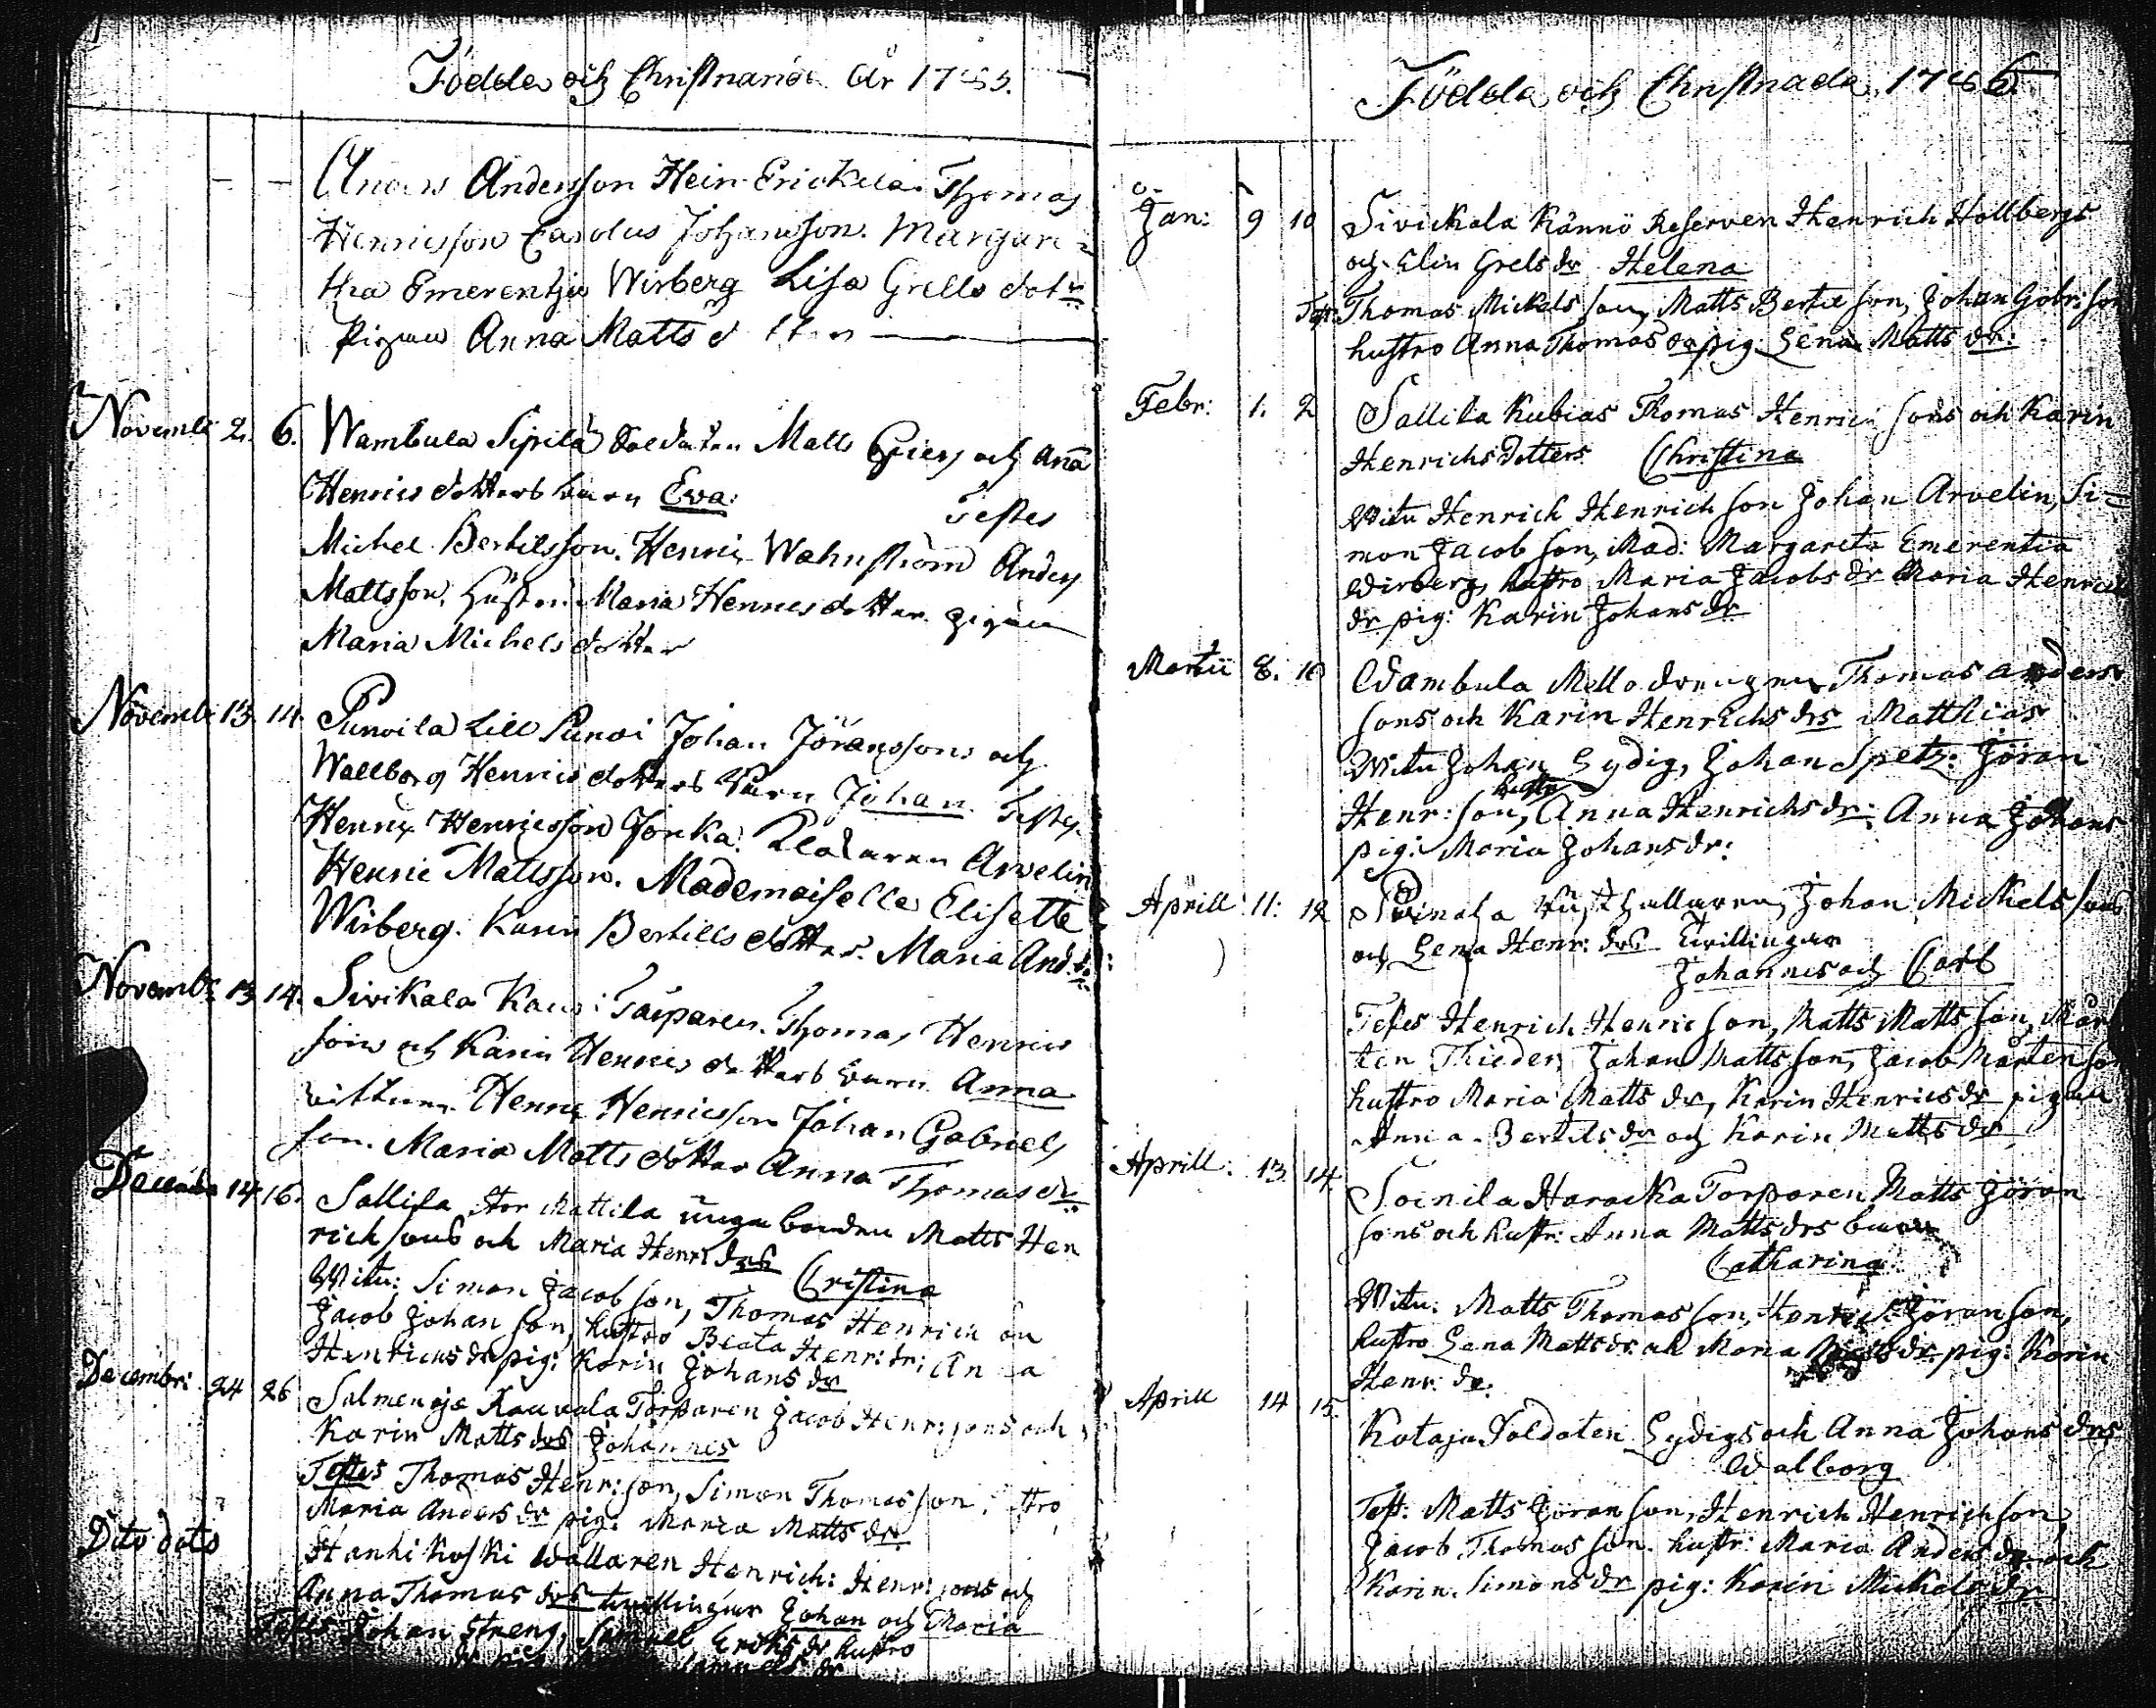 Födde och Christnade År 1765.
Anders Andersson Hein Erickila. Thomas
Henricsson Carolus Johansson. Margare=
tha Emerentzia Wirberg Lisa Grells dotr
Pigan Anna Matts d
Novemb: 2. 6. Wambula Sipilä Soldaten Matts och Ana
Henrics dotters barn Eva.
Testes
Michel Bertilsson. Henric Wahnström Anders
Mattsson. Hustru Maria Henrics dotter. pigan
Maria Michels dotter
Novemb: 13. 14. Punoila Lill Punoi Johan Jöranssons och
Wallborg Henrics dotters barn Johan. Testes.
Henric Henricsson Jonka. Klockaren Arvelin
Henric Mattsson. Mademoiselle Elisette
Wirberg. Karin Bertills dotter. Maria And: dr:
Novemb: 13 14. Sivikala Torparen. Thomas Henrics
sons och Karin Henrics dotters barn Anna
vittnen. Henric Henricsson Johan Gabriels
son. Maria Matts dotter Anna Thomas dr
Decemb: 14 16. Sallila Stor Mattila unga bonden Matts Hen
rich sons och Maria Henr: drs Cristina
Witn: Simon Jacob son, Thomas Henrich
Jacob Johan son, hustro Beata Henr: dr: An a
Henrichs dr pig: Karin Johans dr
Decembri. 24 26 Salmenoja Kauvala Torparen Jacob Henr: sons och
Karin Matts drs Johannes
Testes Thomas Henr: son, Simon Thomas son, stro
Maria Anders dr pig: Maria Matts dr
Dito dato Hanhi koski Wallaren Henrich: Henr: sons och
Anna Thomas drs tvillingar Johan och Maria
Testes Johan Streng, Samuel Eriks dr hustro
Födda och Christnade. 1766
Jan: 9 10 Sivickala Kännö Reserven Henrich Hollbergs
och Elin Grels dr Helena
Test: Thomas Mickels son, Matts Bertil son, Johan Gabr: son
hustro Anna Thomas dr pig Lena Matts dr:
Febr: 1. 2 Sallila Kubias Thomas Henrics sons och Karin
Henrichs dotters Christina
Witn Henrich Henrich son Johan Arvelin, Si=
mon Jacob son, Mad: Margareta Emerentia
Wirberg, hustro Maria Jacobs dr Maria Henrich
dr pig: Karin Johans dr
Martii 8. 10 Wambula Mello drengen Thomas Anders
sons och Karin Henrichs drs Matthias
Witn Johan Lydig, Johan Spetz: Jöran
Henr: son, hustr Anna Henrichs dr: Anna Johans
pig: Maria Johans dr:
Aprill 11: 12 Rusthållaren, Johan Mickels sons
och Lena Henr: drs Tvillingar
Johannes och Carl
Testes Henrich Henric son, Matts Matts son, Mår
ten Thieder, Johan Matts son, Jacob Mårtens son
hustro Maria Matts dr, Karin Henrics dr pigan
Anna Bertils dr och Karin Matts dr
Aprill: 13. 14. Soinila Haracka Torparen Matts Jöran
sons och hustr: Anna Matts drs barn
Catharina
Witn: Matts Thomas son, Henrics Jöran son,
hustro Lena Matts dr och Maria dr pig: Karin
Henr: dr:
Aprill 14 15. Kotaja Soldaten Lydigs och Anna Johans drs
Walborg
Test: Matts Jöran son, Henrich Henrich son,
Jacob Thomas son. hustr: Maria Anders dr och
Karin Simons dr pig: Karin Mickels dr